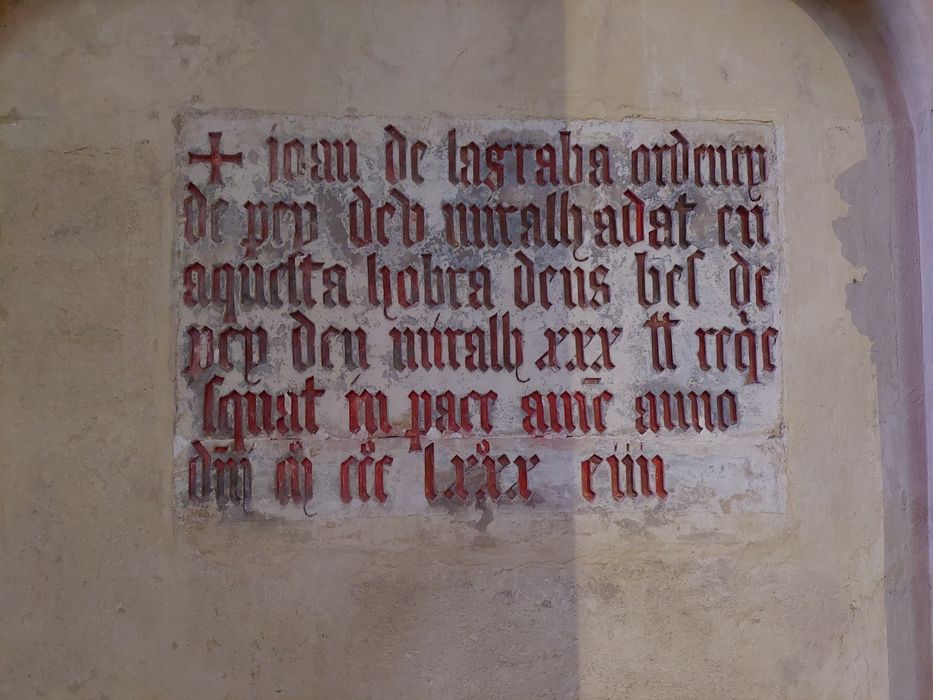 + joan de lagraba ordeney
de pey ded miralh adat en
aquesta hobra deus bes de
pey den miralh xxx tt reqe
squat in pace amē anno
dm̄ mº cccº lxºxx e iiii